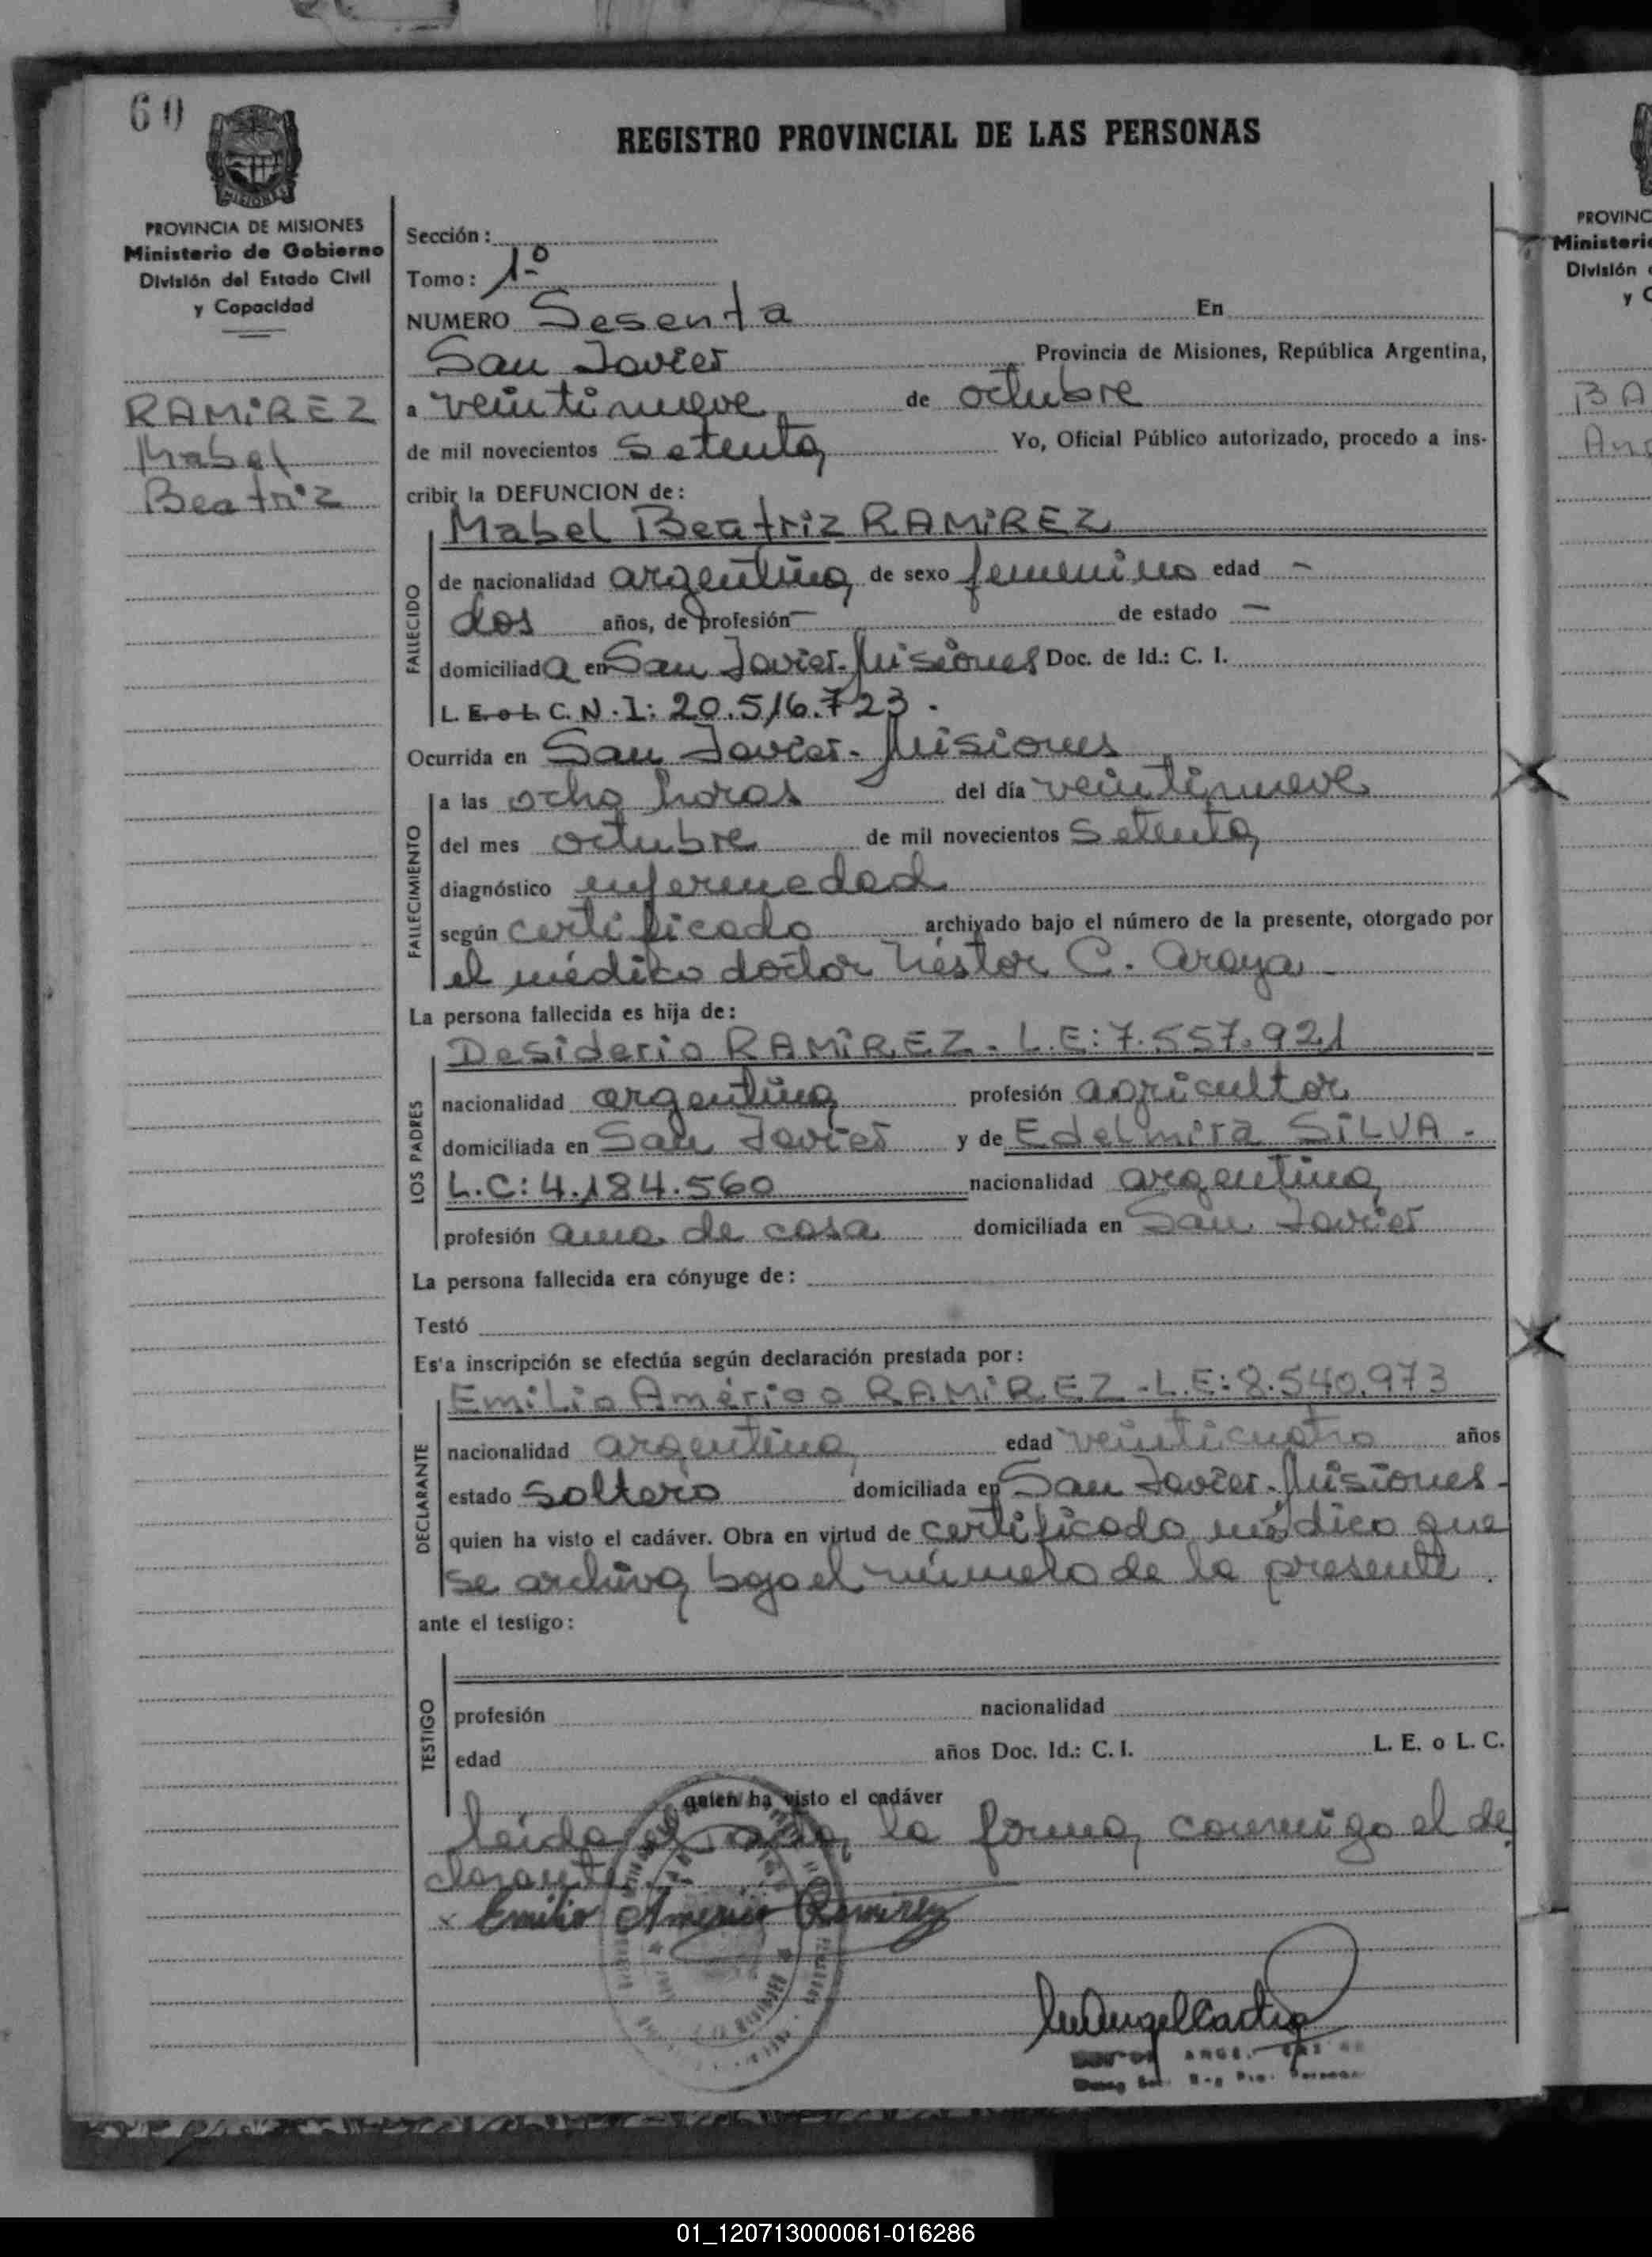 60
REGISTRO PROVINCIAL DE LAS PERSONAS
PROVINCIA DE MISIONES
Ministerio de Gobierno
División del Estado Civil
y Capacidad
RAMIREZ
Mabel
Beatriz
Sección:
Tomo: 1º
NUMERO Sesenta En
San Javier Provincia de Misiones, República Argentina,
a veintinueve de octubre
de mil novecientos setenta Yo, Oficial Público autorizado, procedo a ins-
cribir la DEFUNCION de:
Mabel Beatriz RAMIREZ
FALLECIDO
de nacionalidad argentina de sexo femenino edad -
dos años, de profesión - de estado -
domiciliada en San Javier-Misiones Doc. de Id.: C. I.
L. E. o L. C. N.I: 20.516.723.
Ocurrida en San Javier-Misiones
FALLECIMIENTO
a las ocho horas del día veintinueve
del mes octubre de mil novecientos setenta
diagnóstico enfermedad
según certificado archivado bajo el número de la presente, otorgado por
el médico doctor Néstor C. Araya
La persona fallecida es hija de:
LOS PADRES
Desiderio RAMIREZ. L.E: 7.557.921
nacionalidad argentina profesión agricultor
domiciliada en San Javier y de Edelmira SILVA -
L.C: 4.184.560 nacionalidad argentina
profesión ama de casa domiciliada en San Javier
La persona fallecida era cónyuge de:
Testó
Es'a inscripción se efectúa según declaración prestada por:
DECLARANTE
Emilio Américo RAMIREZ - L.E: 8.540.973
nacionalidad argentina edad veinticuatro años
estado soltero domiciliada en San Javier-Misiones-
quien ha visto el cadáver. Obra en virtud de certificado médico que
se archiva bajo el número de la presente.
ante el testigo:
TESTIGO
profesión nacionalidad
edad años Doc. Id.: C. I. L. E. o L. C.
quien ha visto el cadáver
leida el acta, la firma conmigo el de
clarante
x Emilio Americo Ramirez
PROVINC
Ministeri
División
y C
BA
01_120713000061-016286